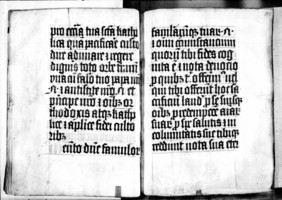 pro ecclia tua scta kath
lica quā pacificare custo
dire adunare et regere
digneris toto orbe terrarū
una cū famulo tuo papa nro
N. et antistite nro N. et
rege nro N. et oibz or
thodoxis atqz katho
lice et aplice fidei culto
ribz
Memēto dne famulor
famularūqz tuar N.
et oim circumstancium
quorū tibi fides cog
nita est et nota deuotio
pro quibz tibi offerim⁹ uel
qui tibi offerunt hoc sa
crificiū laudis pro se suisqz
oibz pro redempcōe aiar
suar pro spe salutis et in
columitatis sue tibiqz
reddunt uota sua eter